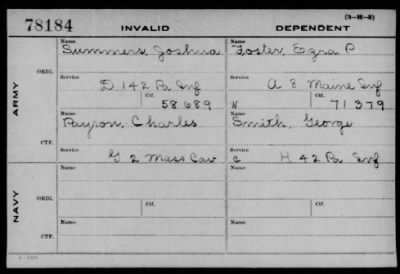 (3-H-5)
78184 INVALID DEPENDENT
Name Name
Summers, Joshua Foster, Ezra P
ORIG. Service Service
D 142 Pa Inf A 8 Maine Inf
ARMY Ctf. Ctf.
58689 W 71379
Name Name
Payson, Charles Smith, George
CTF. Service Service
G 2 Mass Cav C H 42 Pa Inf
Name Name
ORIG. Service Service
NAVY Ctf. Ctf.
Name Name
CTF.